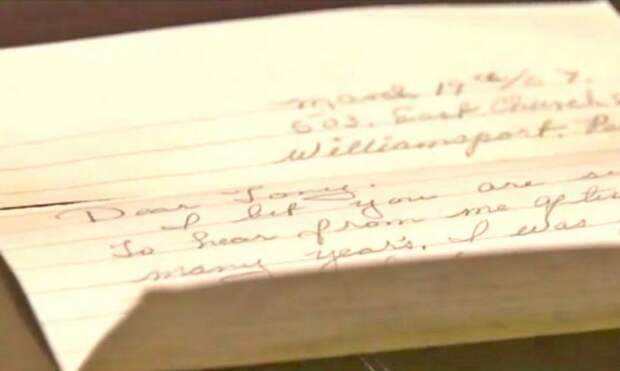 March 19th/67.
503. East. Church
Williamsport. Pa
Dear Tony.
I bet you are su
To hear from me after
many years. I was